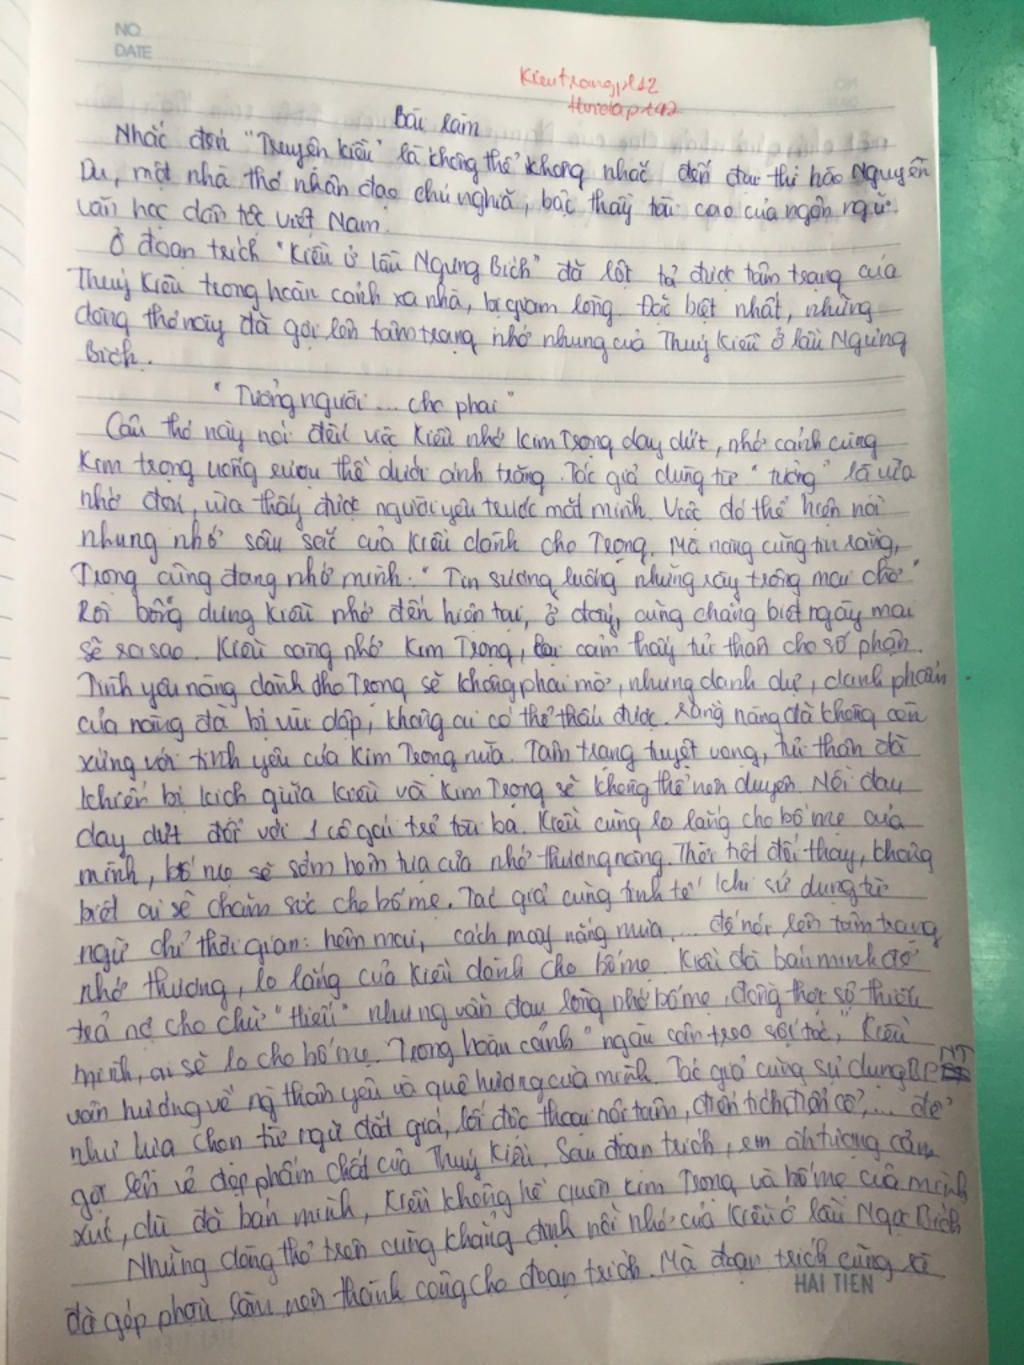 NO
DATE
Kieutrangpt12
Bài làm
Nhắc đến "Truyện Kiều" là không thể không nhắc đến đại thi hào Nguyễn
Du, một nhà thơ nhân đạo chủ nghĩa, bậc thầy tài cao của ngôn ngữ
văn học dân tộc Việt Nam.
Ở đoạn trích "Kiều ở lầu Ngưng Bích" đã lột tả được tâm trạng của
Thuý Kiều trong hoàn cảnh xa nhà, bị giam lỏng. Đặc biệt nhất, những
dòng thơ này đã gợi lên tâm trạng nhớ nhung của Thuý Kiều ở lầu Ngưng
Bích.
"Tưởng người... cho phai"
Câu thơ này nói đến việc Kiều nhớ Kim Trọng day dứt, nhớ cảnh cùng
Kim trọng uống rượu thề dưới ánh trăng. Tác giả dùng từ "tưởng" là vừa
nhớ đến, vừa thấy được người yêu trước mắt mình. Việc đó thể hiện nỗi
nhung nhớ sâu sắc của Kiều dành cho Trọng. Mà nàng cũng tin rằng,
Trọng cũng đang nhớ mình. "Tin sương luống những rày trông mai chờ"
Rồi bỗng dưng Kiều nhớ đến hiện tại, ở đây, cũng chẳng biết ngày mai
sẽ ra sao. Kiều càng nhớ Kim Trọng, cảm thấy tủi thân cho số phận.
Tình yêu nàng dành cho Trọng sẽ không phai mờ, nhưng danh dự, danh phẩm
của nàng đã bị vùi dập, không ai có thể thấu được. rằng nàng đã không còn
xứng với tình yêu của Kim Trọng nữa. Tâm trạng tuyệt vọng, tủi thân đã
khiến bi kịch giữa Kiều và Kim Trọng sẽ không thể nên duyên. Nỗi day
day dứt đối với 1 cô gái trẻ tài ba. Kiều cũng lo lắng cho bố mẹ của
mình, bố mẹ sẽ sớm hôm tựa cửa nhớ thương nàng. Thời tiết đổi thay, không
biết ai sẽ chăm sóc cho bố mẹ. Tác giả cũng tinh tế khi sử dụng từ
ngữ chỉ thời gian: hôm mai, cách mấy nắng mưa,... để nói lên tâm trạng
nhớ thương, lo lắng của Kiều dành cho bố mẹ. Kiều đã bán mình để
trả nợ cho chữ "hiếu" nhưng vẫn đau lòng nhớ bố mẹ, đồng thời sợ thiếu
mình, ai sẽ lo cho bố mẹ. Trong hoàn cảnh "ngàn cân treo sợi tóc," Kiều
vẫn hướng về ng thân yêu và quê hương của mình. Tác giả cũng sử dụng BPNT
như lựa chọn từ ngữ đắt giá, lối độc thoại nội tâm, điển tích điển cố,... để
gợi lên vẻ đẹp phẩm chất của Thuý Kiều. Sau đoạn trích, em ấn tượng cảm
xúc, dù đã bán mình, Kiều không hề quên Kim Trọng và bố mẹ của mình
Những dòng thơ trên cũng khẳng định nỗi nhớ của Kiều ở lầu Ngọc Bích
đã góp phần làm nên thành công cho đoạn trích. Mà đoạn trích cũng sẽ
HAI TIEN